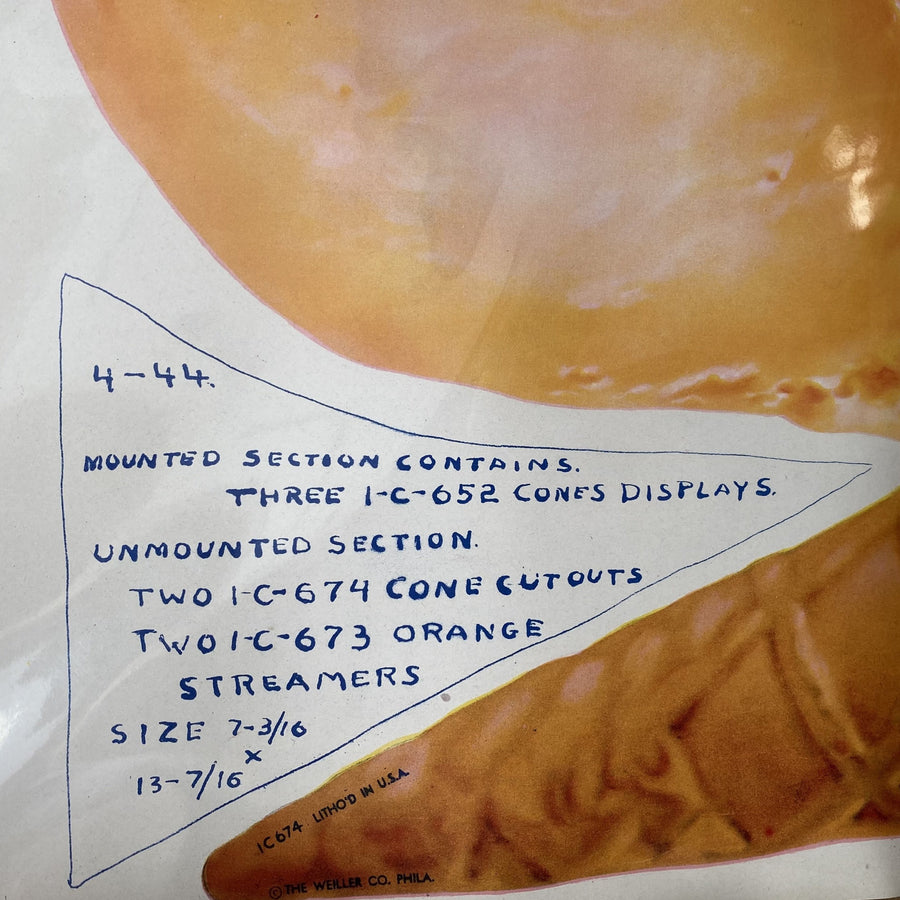 4-44.
MOUNTED SECTION CONTAINS.
THREE 1-C-652 CONES DISPLAYS.
UNMOUNTED SECTION.
TWO 1-C-674 CONE CUTOUTS
TWO 1-C-673 ORANGE
STREAMERS
SIZE 7-3/16
x
13-7/16
IC 674 LITHO'D IN U.S.A.
© THE WEILLER CO. PHILA.